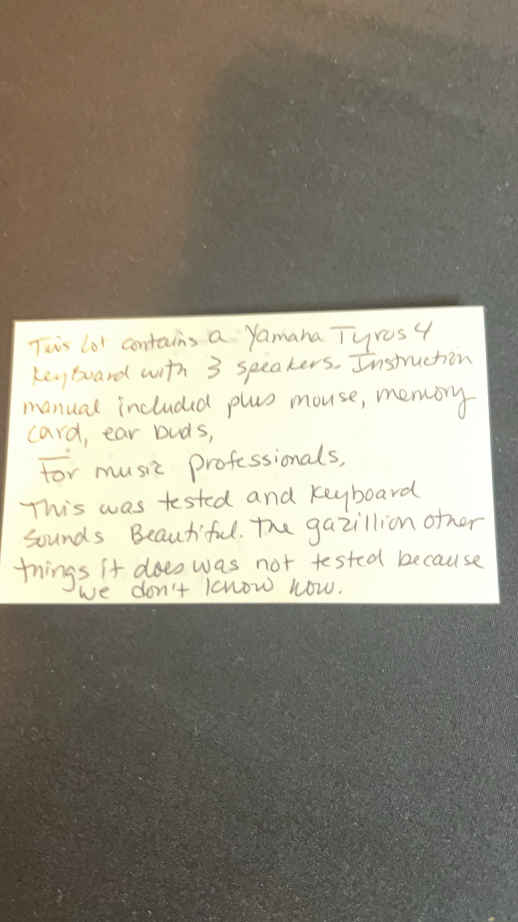 This lot contains a Yamaha Tyros 4
keyboard with 3 speakers. Instruction
manual included plus mouse, memory
card, ear buds,
For music professionals,
This was tested and keyboard
sounds Beautiful. The gazillion other
things it does was not tested because
we don't know how.